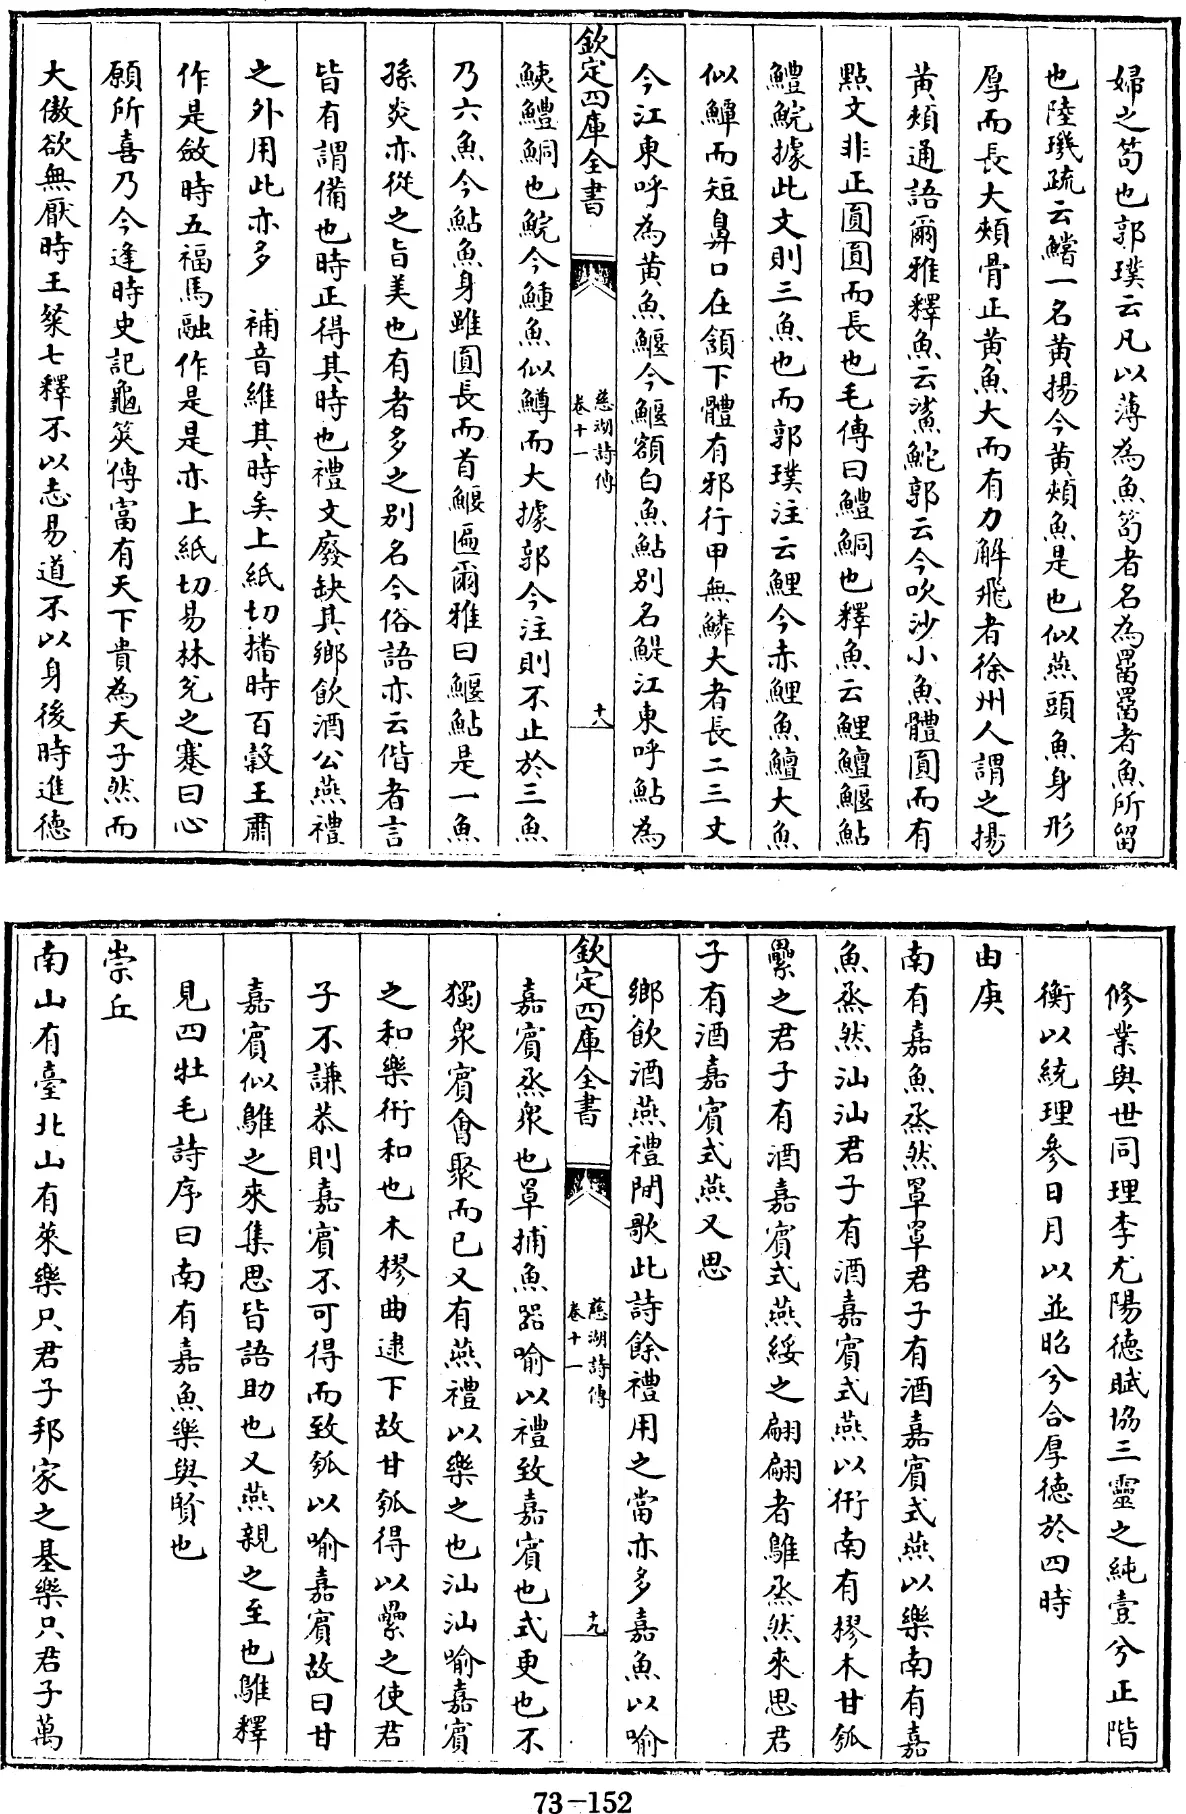 婦之笱也郭璞云凡以薄為魚笱者名為罶罶者魚所留
也陸璣疏云鱨一名黄揚今黄頰魚是也似燕頭魚身形
厚而長大頰骨正黄魚大而有力解飛者徐州人謂之揚
黄頰通語爾雅釋魚云鯊鮀郭云今吹沙小魚體圓而有
點文非正圓圓而長也毛傳曰鱧鮦也釋魚云鯉鱣鰋鮎
鱧鯇據此文則三魚也而郭璞注云鯉今赤鯉魚鱣大魚
似鱏而短鼻口在頷下體有邪行甲無鱗大者長二三丈
今江東呼為黄魚鰋今鰋額白魚鮎别名鯷江東呼鮎為
欽定四庫全書
慈湖詩傳
卷十一
十八
鮧鱧鮦也鯇今鯶魚似鱒而大據郭今注則不止於三魚
乃六魚今鮎魚身雖圓長而首鰋匾爾雅曰鰋鮎是一魚
孫炎亦從之旨美也有者多之别名今俗語亦云偕者言
皆有謂備也時正得其時也禮文廢缺其鄉飲酒公燕禮
之外用此亦多　補音維其時矣上紙切播時百穀王肅
作是斂時五福馬融作是是亦上紙切易林兊之蹇曰心
願所喜乃今逢時史記龜筴傳富有天下貴為天子然而
大傲欲無厭時王粲七釋不以志易道不以身後時進德
修業與世同理李尤陽德賦協三靈之純壹兮正階
衡以統理參日月以並昭兮合厚德於四時
由庚
南有嘉魚烝然罩罩君子有酒嘉賓式燕以樂南有嘉
魚烝然汕汕君子有酒嘉賓式燕以衎南有樛木甘瓠
纍之君子有酒嘉賓式燕綏之翩翩者鵻烝然來思君
子有酒嘉賓式燕又思
鄉飲酒燕禮間歌此詩餘禮用之當亦多嘉魚以喻
欽定四庫全書
慈湖詩傳
卷十一
十九
嘉賓烝衆也罩捕魚器喻以禮致嘉賓也式更也不
獨衆賓會聚而已又有燕禮以樂之也汕汕喻嘉賓
之和樂衎和也木樛曲逮下故甘瓠得以纍之使君
子不謙恭則嘉賓不可得而致瓠以喻嘉賓故曰甘
嘉賓似鵻之來集思皆語助也又燕親之至也鵻釋
見四牡毛詩序曰南有嘉魚樂與賢也
崇丘
南山有臺北山有萊樂只君子邦家之基樂只君子萬
73-152